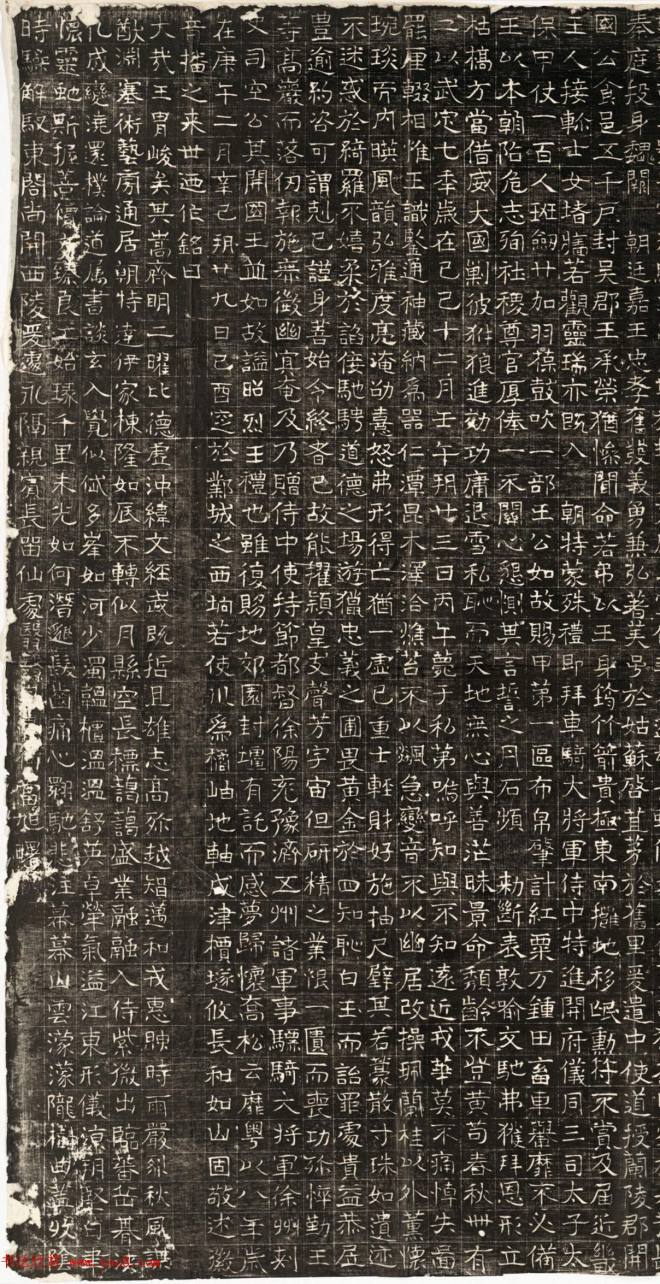 奉庭投身魏闕 朝廷嘉王忠孝奮發義勇兼弘著美号於姑蘇啓苴茅於舊里爰遣中使道授蘭陵郡開
國公食邑五千戶封吳郡王承榮猶慘聞命若弔以王身筠竹箭貴極東南攡地移氓勳持不賞及屆近畿
主人接軫士女堵牆若觀靈瑞亦既入 朝特蒙殊禮即拜車騎大將軍侍中特進開府儀同三司太子太
保甲仗一百人班劒廿加羽葆鼓吹一部王公如故賜甲第一區布帛肇計紅粟万鍾田畜車轝靡不必備
王以本朝陷危志殉社稷尊官厚俸一不關心懇惻其言誓之月石頻 勑斷表敦喻交馳弗獲拜恩形立
枯槁方當借威大國剿彼豺狼進効功庸退雪私恥而天地無心與善茫昧景命頹齡不登黃苟春秋卌有
二以武定七季歲在己巳十二月壬午朔廿三日丙午薨于私第嗚呼知與不知遠近戎華莫不痛悼失圖
罷厘輟相惟王識鑒通神藏納爲器仁潭昆木澤洽燋苔不以飆急變音不以幽居改操珮蘭桂以外薰懷
琬琰而內暎風韻弘雅度亮淹劭憙怒弗形得亡猶一虛己重士輕財好施抽尺璧其若蒙散寸珠如遺迹
不迷惑於綺羅不嬉柔於諂佞馳騁道德之場遊獵忠義之圃畏黃金於四知恥白玉而詒罪處貴益恭居
豊逾約咨可謂剋己謹身善始令終者已故能擢穎皇支聲芳宇宙但研精之業限一匱而喪功殄悴勤王
等高巖而落仞報施無徵幽冥奄及乃贈侍中使持節都督徐陽兗豫濟五州諸軍事驃騎大將軍徐州刺
史司空公其開國王並如故謚昭烈王禮也雖復賜地郊園封壃有託而感夢歸懷喬松云靡粵以八年歲
在庚午二月辛巳朔廿九日己酉窆於鄴城之西堈若使川爲橘岫地軸成津檟墜攸長和如山固敬述徽
之来世迺作銘曰
大哉王冑峻矣其嵩齊明二曜比德虛沖緯文經武既括且雄志高弥越智邁和戎惠映時雨嚴糾秋風
猷淵塞術藝廣通居朝特達伊家棟隆如底不轉似月縣空長標藹藹盛業融融入侍紫微出臨蕃岳
化成變澆還樸論道屬書談玄入覺似弒多峯如河少濁韞櫃溫溫舒英卓犖氣溢江東形儀
靈虵斯握善價良工始琢千里未光如何潛遯髮齒痛心翱馳悲汪幕山雲濛濛隴樹
時驂解駁東閣尚開西陵爰處永隔親賓長留仙處
www.yac8.com